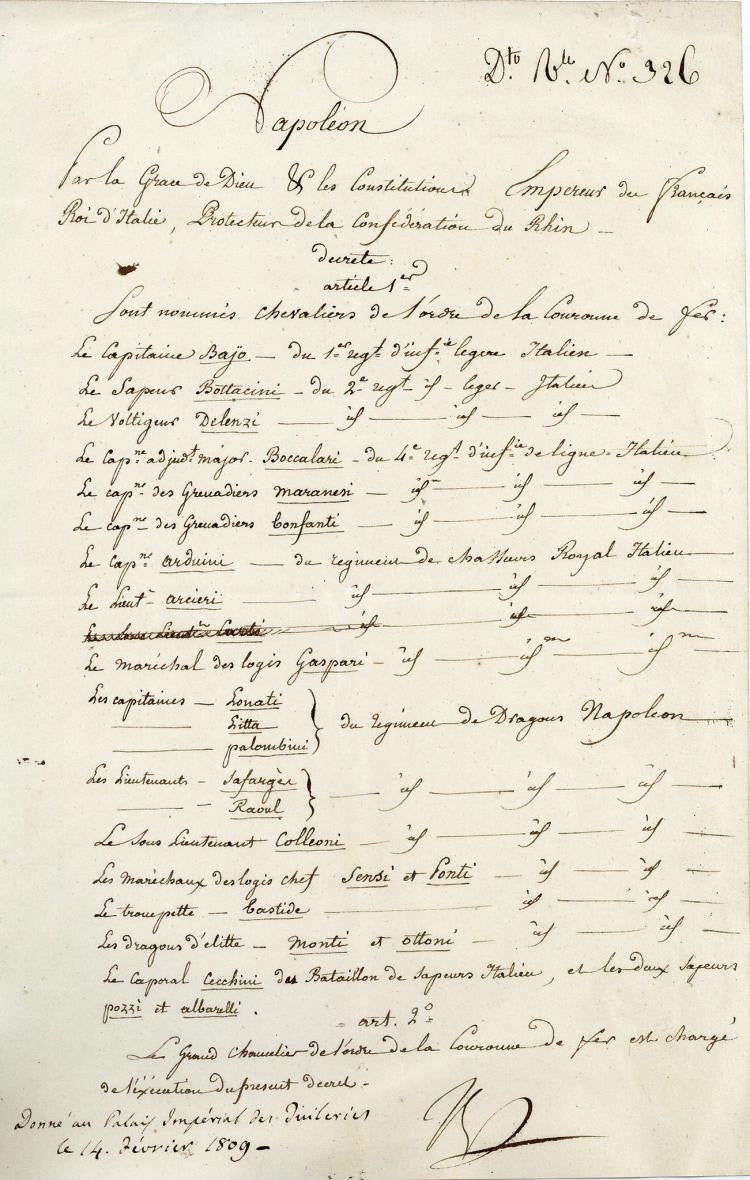 Dto Rle No 326
Napoléon
Par la Grace de Dieu & les Constitutions Empereur des français
Roi d'Italie, Protecteur de la Confédération du Rhin –
decrete:
article 1er
Sont nommés chevaliers de l'ordre de la Couronne de fer:
Le Capitaine Bajo – du 1er regt d'infie legere Italien –
Le Sapeur Bottacini – du 2e regt id – leger – Italien
Le Voltigeur Delenzi – id – id – id –
Le capne adjudt major – Boccalari – du 4e regt d'infie de ligne – Italien
Le capne des Grenadiers Maranesi – id – id – id –
Le capne des Grenadiers Bonfanti – id – id – id –
Le capne arduini – du regiment de chasseurs Royal Italien –
Le Lieutt arcieri – id – id – id –
id – id – id –
Le maréchal des logis Gaspari – id – idm – idm
Les capitaines – Lonati
Litta
palombini
du regiment de Dragons Napoleon –
Les Lieutenants – Lafargèr
Raoul
– id – id – id –
Le Sous Lieutenant Colleoni – id – id – id
Les maréchaux des logis chef Sensi et Ponti – id – id – id
Le trompette – Bastide – id – id –
Les dragons d'elitte – Monti et Ottoni – id – id
Le Caporal Cecchini du Bataillon de Sapeurs Italien, et les deux Sapeurs
pozzi et albarelli.
art. 2o
Le Grand Chancelier de l'ordre de la Couronne de fer est chargé
de l'éxécution du présent decret –
Donné au Palais Impérial des Tuileries
le 14. Février 1809 –